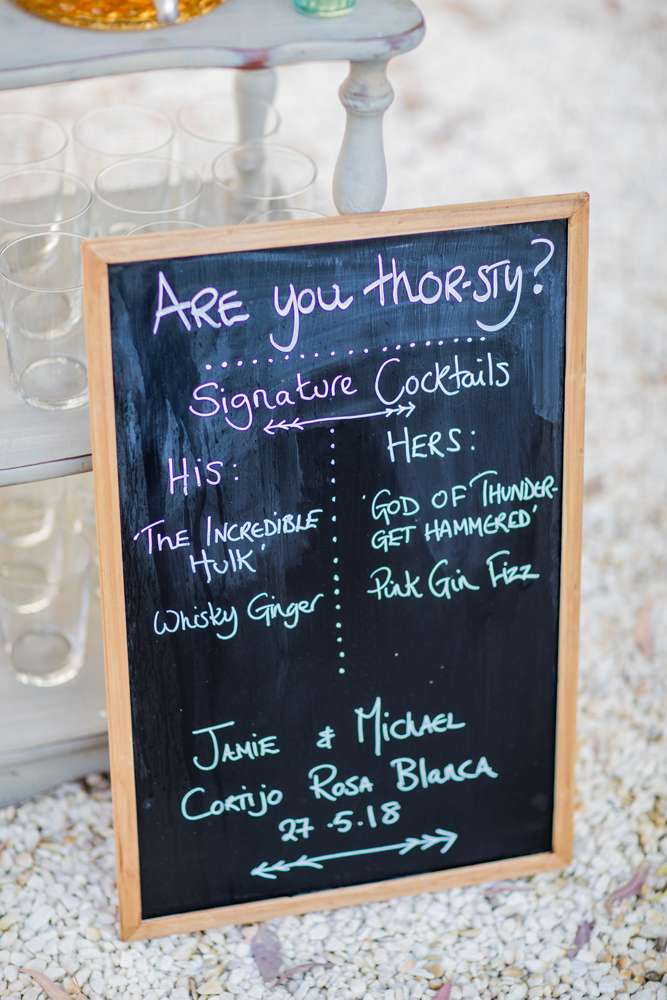 ARE you THOR-STY?
Signature Cocktails
HIS:
'THE INCREDIBLE
HULK'
Whisky Ginger
HERS:
'GOD OF THUNDER-
GET HAMMERED'
Pink Gin Fizz
JAMIE & MICHAEL
CORTIJO ROSA BLANCA
27.5.18